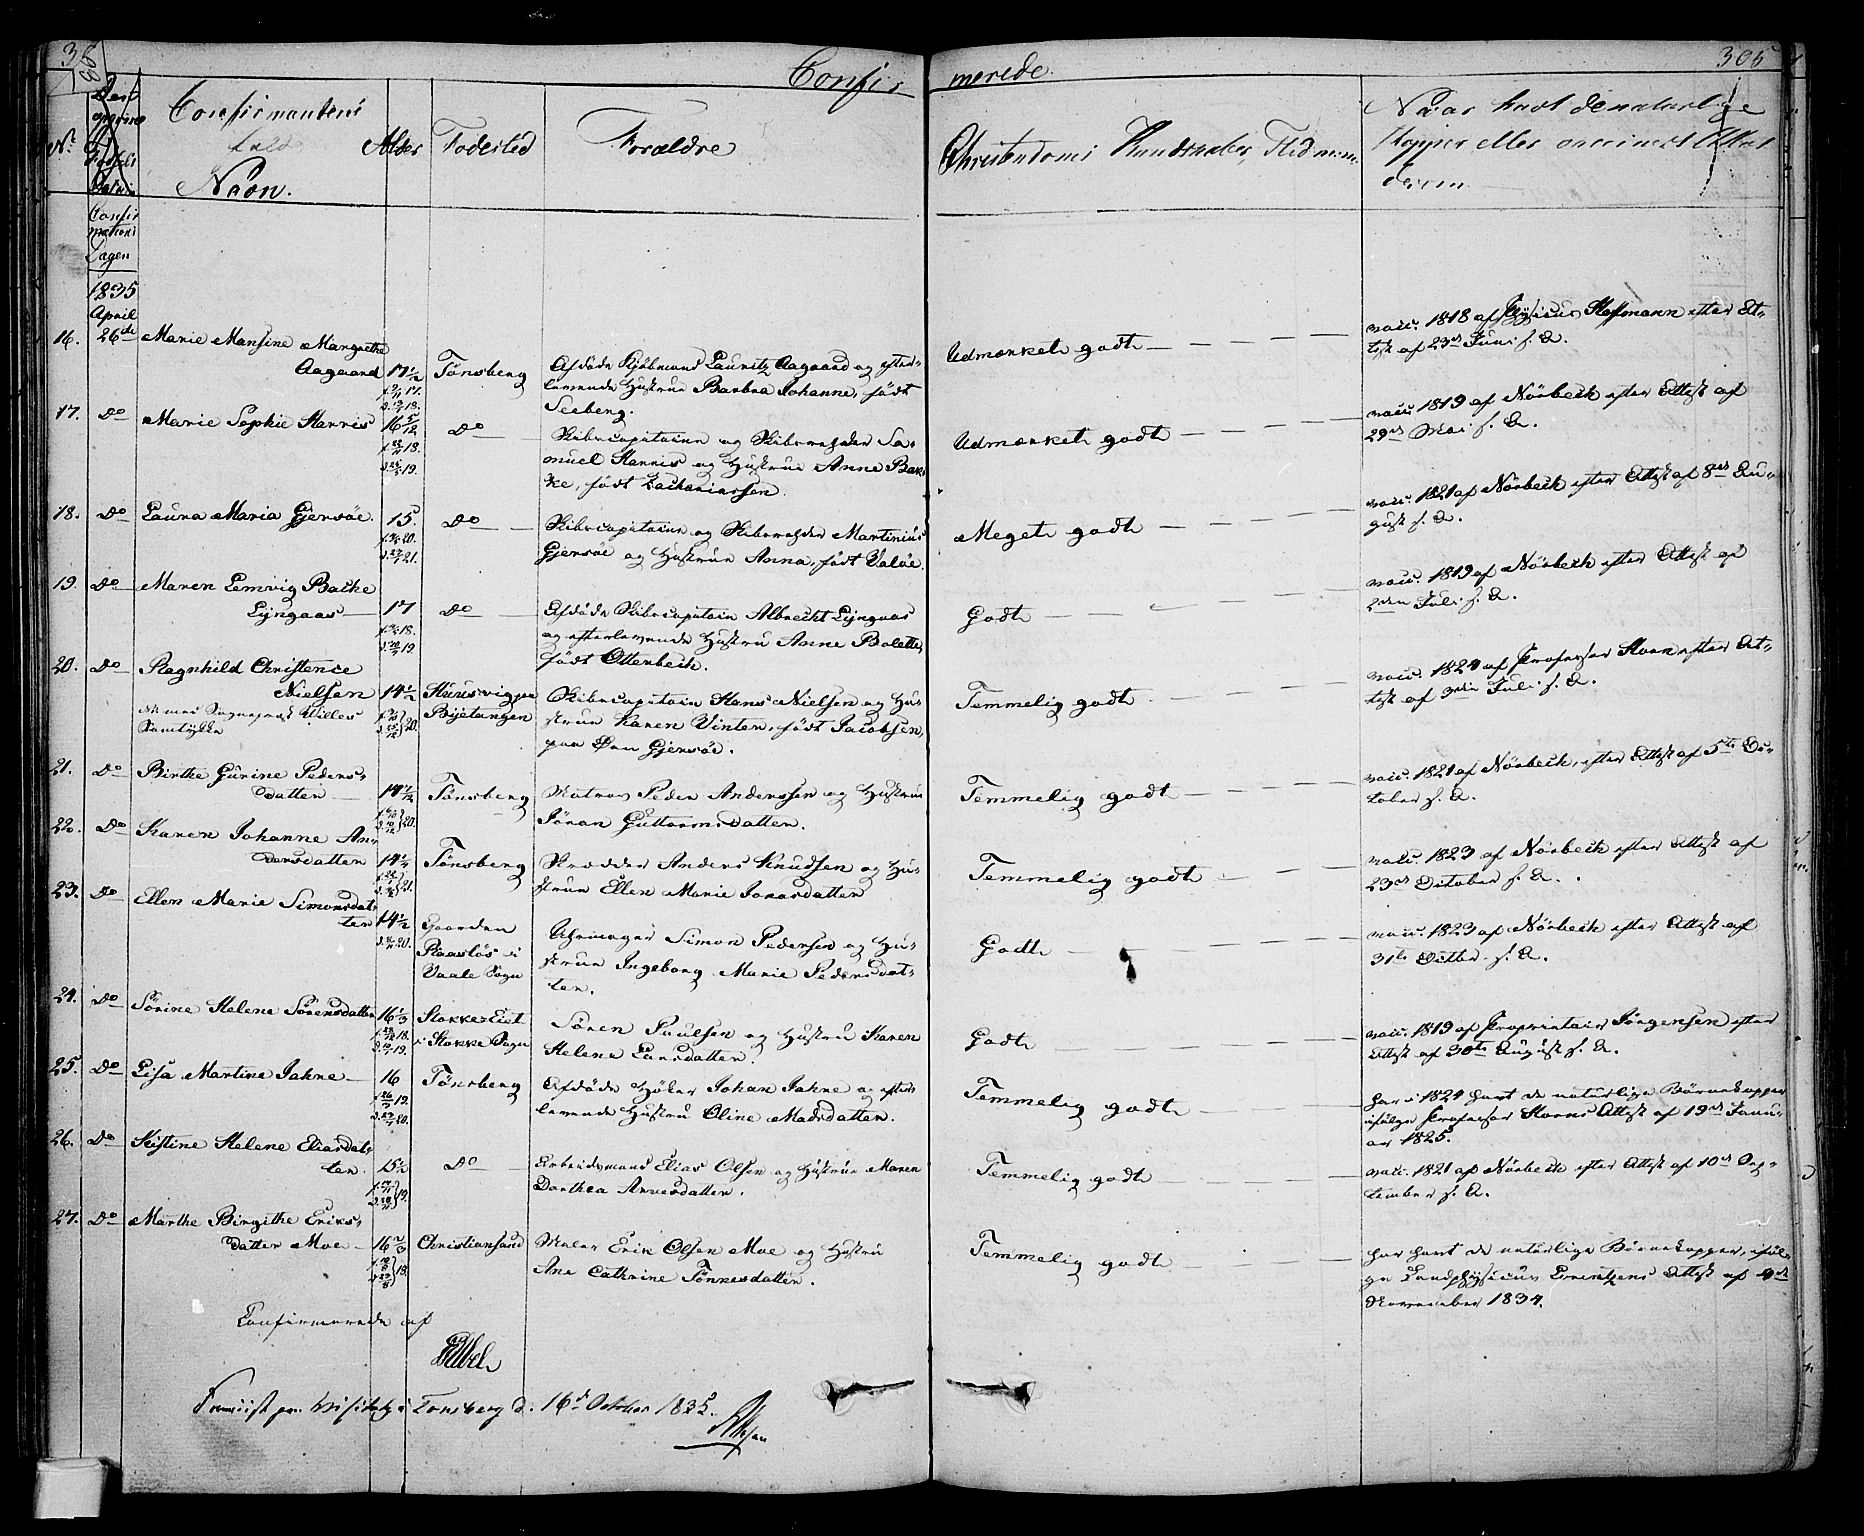 305
Confir
merede.
No
Confirmandens
fulde
Navn.
Alder
Fødested
Forældre
Christendoms Kundskaber
Naar havt de naturlige
Kopper eller vaccineret Attest
derom
Confir
mations
Dagen
1835
April
16. 26de Marie Mansine Margrethe
Aagaard 17 1/2 Tönsberg
Afdöde Kjöbmand Lauritz Aagaard og efter-
levende Hustrue Barbra Johanne, födt
Seeberg.
Udmærket godt
vacc. 1818 af Physicus Hoffmann efter At-
test af 23de Juni s. A.
17. Do Marie Sophie Harris 16 5/12 Do
Skibscapitain og Skibsrehder Sa-
muel Harris og Hustrue Anne Bak-
ke, födt Zachariassen.
Udmærket godt
vacc. 1819 af Nörbech efter Attest af
29de Mai s. A.
18. Do Laura Maria Gjersöe. 15. Do
Skibscapitain og Skibsrehder Martinius
Gjersöe og Hustrue Anna, födt Valöe.
Meget godt
vacc. 1821 af Nörbech efter Attest af 8de Au-
gust s. A.
19. Do Maren Lemvig Bache
Lyngaas 17 Do
Afdöde Skibscapitain Albrecht Lyngaas
og efterlevende Hustru Anne Bolette,
födt Otterbech.
Godt
vacc. 1819 af Nörbech efter Attest af
2den Juli s. A.
20. Do Ragnhild Christence
Nielsen 14 1/2
Samtykke
Skibscapitain Hans Nielsen og Hu-
strue Karen Vinter, födt Jacobsen,
paa Gjersöe.
Temmelig godt
vacc. 1824 af Professor Horn efter At-
test af 3die Juli s. A.
21. Do Birthe Gurine Peders-
datter 14 1/2 Tönsberg
Matros Peder Anderssen og Hustrue
Jöran Guttormsdatter.
Temmelig godt
vacc. 1821 af Nörbech, efter Attest af 5te Oc-
tober s. A.
22. Do Karen Johanne An-
dersdatter 14 1/2 Tönsberg
Skrædder Anders Knudsen og Hu-
strue Ellen Marie Jonasdatter
Temmelig godt
vacc. 1823 af Nörbech efter Attest af
23de October s. A.
23. Do Ellen Marie Simonsdat-
ter 14 1/2 Gaarden
i
Vaale Sogn
Uhrmager Simon Pedersen og Hu-
strue Ingeborg Marie Pedersdat-
ter.
Godt
vacc. 1823 af Nörbech efter Attest af
31te s. A.
24. Do Sörine Helene Sörensdatter 16 1/3
i Stokke Sogn
Sören Paulsen og Hustru Karen
Helene Larsdatter.
Godt
vacc. 1819 af Proprietair Jörgensen efter
Attest af 30te August s. A.
25. Do Lisa Martine Jahne 16 Tönsberg
Afdöde Höker Johan Jahne og efter-
levende Hustru Oline Madsdatter.
Temmelig godt
har i 1824 havt de naturlige Börnekopper
ifölge Professor Horns Attest af 19de Janu-
ar 1825.
26. Do Kistine Helene Eliasdat-
ter. 15 1/2 Do
Arbeidsmand Elias Olsen og Hustrue Maren
Dorthea Arnesdatter.
Temmelig godt
vacc. 1821 af Nörbech efter Attest af 10de Sep-
tember s. A.
27. Do Marthe Birgithe Eriks-
datter Moe 16 2/3 Christiansand
Maler Erik Olsen Moe og Hustru
Ane Cathrine Tönnesdatter.
Temmelig godt
har havt de naturlige Börnekopper, iföl-
ge Landphysicus Attest af
November 1834.
Confirmerede af
Fremviist paa Visitats i Tonsberg d. 16de October 1835.